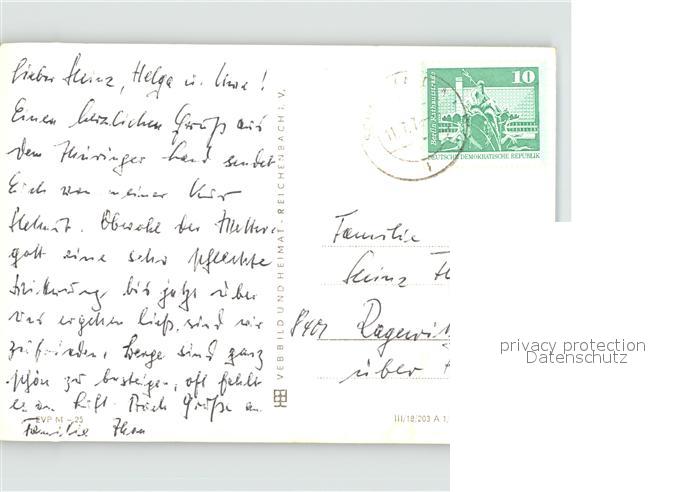 Lieber Heinz, Helga u. Uwe!
Einen herzlichen Gruß aus
dem Thüringer Land sendet
Euch von meiner Kur
Helmut. Obwohl der Wetter-
gott eine sehr schlechte
bis jetzt über
uns ergehen ließ, sind wir
zufrieden, Berge sind ganz
schön zu besteigen, oft fehlt
Luft. Grüße an
Familie
EVP M -.25
VEB BILD UND HEIMAT · REICHENBACH i. V.
10
Berlin, Rathausstrasse
DEUTSCHE DEMOKRATISCHE REPUBLIK
Familie
Heinz
8401 Ragewitz
über
III/18/203 A 1/
privacy protection
Datenschutz